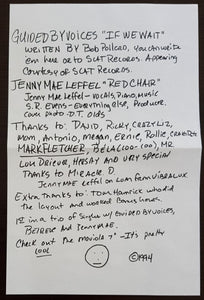 GUIDED BY VOICES "IF WE WAIT"
WRITTEN BY Bob Pollard, You can write
em here or to SCAT RECORDS. Appearing
Courtesy of SCAT RECORDS.
JENNY MAE LEFFEL "RED CHAIR"
Jenny Mae Leffel - Vocals, Piano, music
S.R. Evens - Everything else, Producer,
Cover photo D.T. Olds
Thanks to: David, Ricky, Crazy Liz,
Mom, Antonio, Megan, Ernie, Rollie,
MARK FLETCHER, BELA (100-100), MR
Lou Dreier, Hershy AND VERY Special
Thanks to Miracle D.
Jenny Mae Leffel on Loan from VIBRALUX
Extra Thanks to: Tom Hamrick who did
the layout and worked Bonus hours.
1st in a trio of Singles w/ GUIDED BY VOICES,
BELREVE and Jenny Mae.
Check out the Moviola 7" - It's pretty
cool
©1994